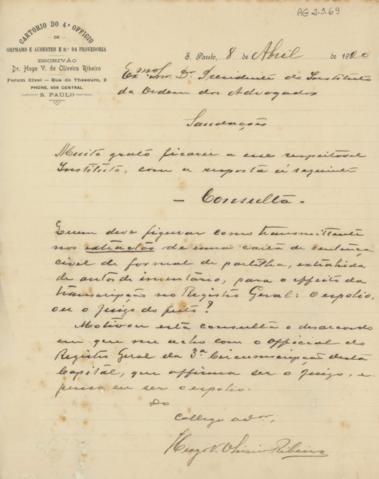 AG 2.3.69
CARTORIO DO 4º OFFICIO
DE
ORPHAMS E AUSENTES E 2º DA PROVEDORIA
ESCRIVÃO
Dr. Hugo V. de Oliveira Ribeiro
Forum Civel - Rua do Thesouro, 2
PHONE, 558 CENTRAL
S. PAULO
S. Paulo, 8 de Abril de 19
Exmo Snr. Dr. Presidente do Instituto
da Ordem dos Advogados
Saudação
Muito grato ficarei a esse respeitavel
Instituto, com a resposta á seguinte
— Consulta —
Quem deve figurar como transmittente
nos extractos de uma carta de sentença
civel de formal de partilha, extrahida
de autos de inventário, para o effeito da
transcripção no Registro Geral: o espolio
ou o juizo do feito?
Motivou esta consulta o desaccordo
em que me acho com o Official do
Registro Geral da 3ª Circumscripção desta
Capital, que affirma ser o juizo, e
penso eu ser o espolio.
Do
Collega
Hugo V. Oliveira Ribeiro